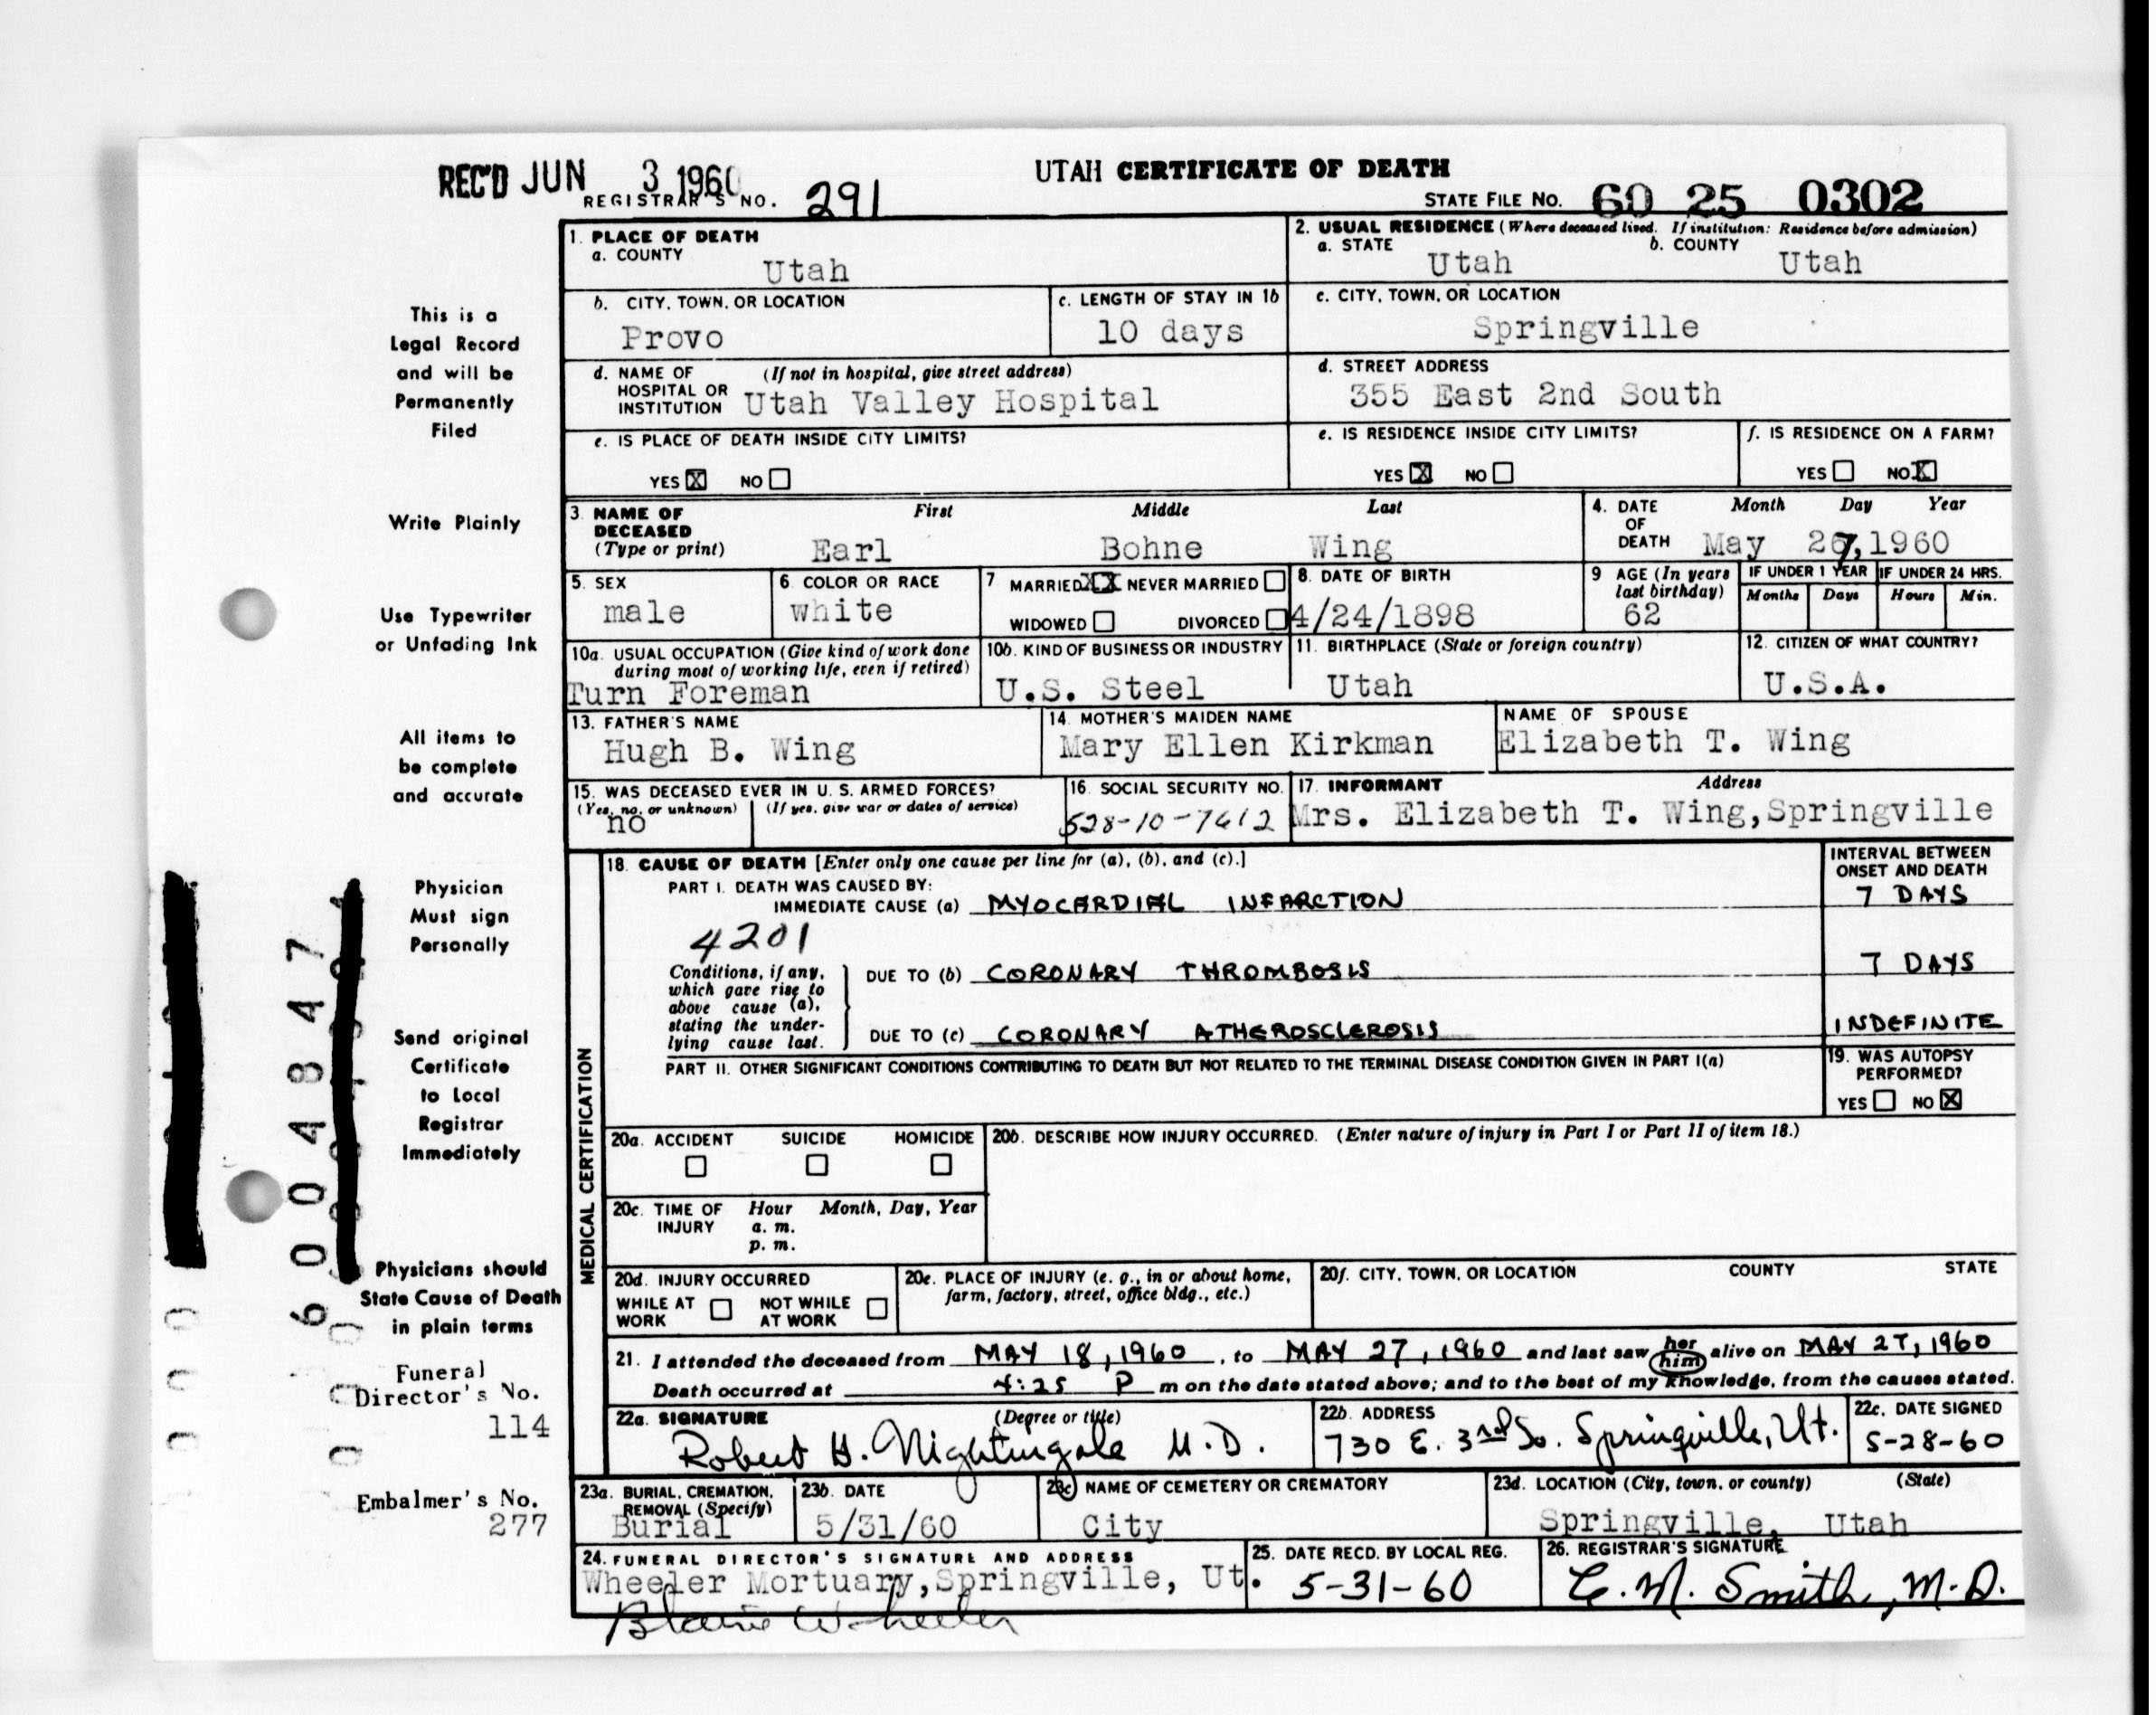 REC'D JUN 3 1960
UTAH CERTIFICATE OF DEATH
REGISTRAR'S NO. 291
STATE FILE NO. 60 25 0302
1. PLACE OF DEATH
a. COUNTY
Utah
2. USUAL RESIDENCE (Where deceased lived. If institution: Residence before admission)
a. STATE
Utah
b. COUNTY
Utah
b. CITY, TOWN, OR LOCATION
Provo
c. LENGTH OF STAY IN 1b
10 days
c. CITY, TOWN, OR LOCATION
Springville
d. NAME OF HOSPITAL OR INSTITUTION
(If not in hospital, give street address)
Utah Valley Hospital
d. STREET ADDRESS
355 East 2nd South
e. IS PLACE OF DEATH INSIDE CITY LIMITS?
YES X NO
e. IS RESIDENCE INSIDE CITY LIMITS?
YES X NO
f. IS RESIDENCE ON A FARM?
YES NO X
3. NAME OF DECEASED (Type or print)
First Middle Last
Earl Bohne Wing
4. DATE OF DEATH
Month Day Year
May 27, 1960
5. SEX
male
6. COLOR OR RACE
white
7 MARRIED XX NEVER MARRIED
WIDOWED DIVORCED
8. DATE OF BIRTH
4/24/1898
9 AGE (In years last birthday)
62
IF UNDER 1 YEAR
Months Days
IF UNDER 24 HRS.
Hours Min.
10a. USUAL OCCUPATION (Give kind of work done during most of working life, even if retired)
Turn Foreman
10b. KIND OF BUSINESS OR INDUSTRY
U.S. Steel
11. BIRTHPLACE (State or foreign country)
Utah
12. CITIZEN OF WHAT COUNTRY?
U.S.A.
13. FATHER'S NAME
Hugh B. Wing
14. MOTHER'S MAIDEN NAME
Mary Ellen Kirkman
NAME OF SPOUSE
Elizabeth T. Wing
15. WAS DECEASED EVER IN U. S. ARMED FORCES?
(Yes, no, or unknown) (If yes, give war or dates of service)
no
16. SOCIAL SECURITY NO.
528-10-7612
17. INFORMANT Address
Mrs. Elizabeth T. Wing, Springville
MEDICAL CERTIFICATION
18. CAUSE OF DEATH [Enter only one cause per line for (a), (b), and (c).]
INTERVAL BETWEEN ONSET AND DEATH
PART I. DEATH WAS CAUSED BY:
IMMEDIATE CAUSE (a) MYOCARDIAL INFARCTION
7 DAYS
4201
Conditions, if any, which gave rise to above cause (a), stating the underlying cause last.
DUE TO (b) CORONARY THROMBOSIS
7 DAYS
DUE TO (c) CORONARY ATHEROSCLEROSIS
INDEFINITE
PART II. OTHER SIGNIFICANT CONDITIONS CONTRIBUTING TO DEATH BUT NOT RELATED TO THE TERMINAL DISEASE CONDITION GIVEN IN PART I(a)
19. WAS AUTOPSY PERFORMED?
YES NO X
20a. ACCIDENT SUICIDE HOMICIDE
20b. DESCRIBE HOW INJURY OCCURRED. (Enter nature of injury in Part I or Part II of item 18.)
20c. TIME OF INJURY Hour Month, Day, Year
a. m.
p. m.
20d. INJURY OCCURRED
WHILE AT WORK NOT WHILE AT WORK
20e. PLACE OF INJURY (e. g., in or about home, farm, factory, street, office bldg., etc.)
20f. CITY, TOWN, OR LOCATION COUNTY STATE
21. I attended the deceased from MAY 18, 1960, to MAY 27, 1960 and last saw her him alive on MAY 27, 1960
Death occurred at 4:25 P m on the date stated above; and to the best of my knowledge, from the causes stated.
22a. SIGNATURE (Degree or title)
Robert H. Nightingale M.D.
22b. ADDRESS
730 E. 3rd So. Springville, Ut.
22c. DATE SIGNED
5-28-60
23a. BURIAL, CREMATION, REMOVAL (Specify)
Burial
23b. DATE
5/31/60
23c NAME OF CEMETERY OR CREMATORY
City
23d. LOCATION (City, town, or county) (State)
Springville, Utah
24. FUNERAL DIRECTOR'S SIGNATURE AND ADDRESS
Wheeler Mortuary, Springville, Ut.
Blaine Wheeler
25. DATE RECD. BY LOCAL REG.
5-31-60
26. REGISTRAR'S SIGNATURE
C. M. Smith, M.D.
This is a
Legal Record
and will be
Permanently
Filed
Write Plainly
Use Typewriter
or Unfading Ink
All items to
be complete
and accurate
Physician
Must sign
Personally
Send original
Certificate
to Local
Registrar
Immediately
Physicians should
State Cause of Death
in plain terms
Funeral
Director's No.
114
Embalmer's No.
277
6004847